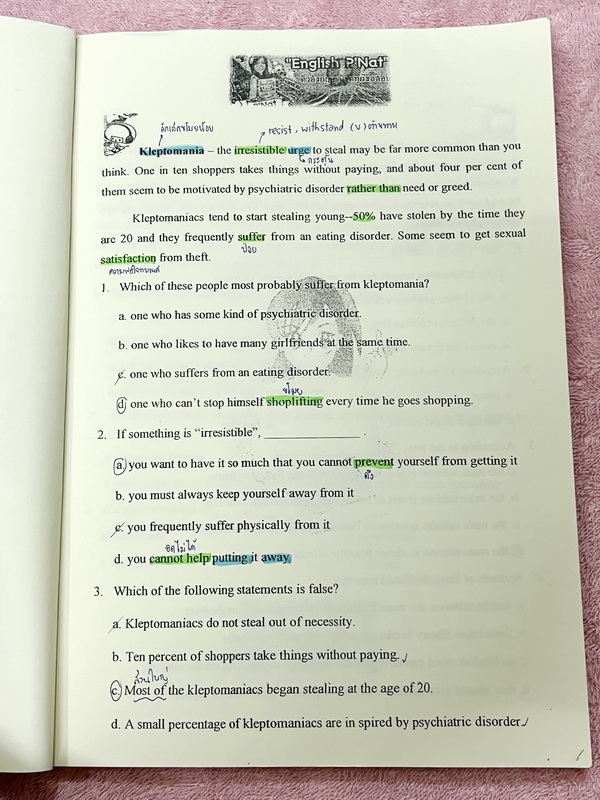 "English P'Nat"
resist, withstand (v) ต้านทาน
Kleptomania – the irresistible urge to steal may be far more common than you
กระตุ้น
think. One in ten shoppers takes things without paying, and about four per cent of
them seem to be motivated by psychiatric disorder rather than need or greed.
Kleptomaniacs tend to start stealing young--50% have stolen by the time they
are 20 and they frequently suffer from an eating disorder. Some seem to get sexual
ป่วย
satisfaction from theft.
1. Which of these people most probably suffer from kleptomania?
a. one who has some kind of psychiatric disorder.
b. one who likes to have many girlfriends at the same time.
c. one who suffers from an eating disorder.
ขโมย
d. one who can't stop himself shoplifting every time he goes shopping.
2. If something is "irresistible", ______________ .
a. you want to have it so much that you cannot prevent yourself from getting it
b. you must always keep yourself away from it
c. you frequently suffer physically from it
อดไม่ได้
d. you cannot help putting it away
3. Which of the following statements is false?
a. Kleptomaniacs do not steal out of necessity.
b. Ten percent of shoppers take things without paying.
ส่วนใหญ่
c. Most of the kleptomaniacs began stealing at the age of 20.
d. A small percentage of kleptomaniacs are in spired by psychiatric disorder.